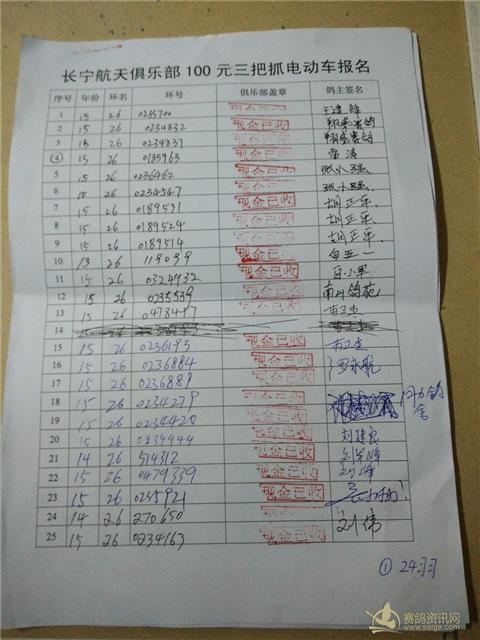 长宁航天俱乐部100元三把抓电动车报名
序号 年份 环名 环号 俱乐部盖章 鸽主签名
1 15 26 0235700 现金已收
2 15 26 0234832 现金已收 翔盛赛鸽
3 15 26 0234839 现金已收 翔盛赛鸽
4 15 26 0185963 现金已收 雷涛
5 15 26 0236462 现金已收 张小强
6 15 26 0234547 现金已收 张小强
7 15 26 0189531 现金已收 胡正平
8 15 26 0189524 现金已收 胡正平
9 15 26 0189514 现金已收 胡正平
10 13 26 119039 现金已收 白五一
11 15 26 0324932 现金已收 白小军
12 15 26 0235539 现金已收 南山鸽苑
13 15 26 0478497 现金已收
14
15 15 26 0236193 现金已收
16 15 26 0236884 现金已收 罗永航
17 15 26 0236889 现金已收
18 15 26 0234279 现金已收 126鸽舍
19 15 26 0234420 现金已收
20 15 26 0234944 现金已收 刘建良
21 14 26 514312 现金已收
22 15 26 0479339 现金已收
23 15 26 0235921 现金已收
24 14 26 270650
25 15 26 0234163 刘伟
① 24羽
赛鸽资讯网
www.saige.com